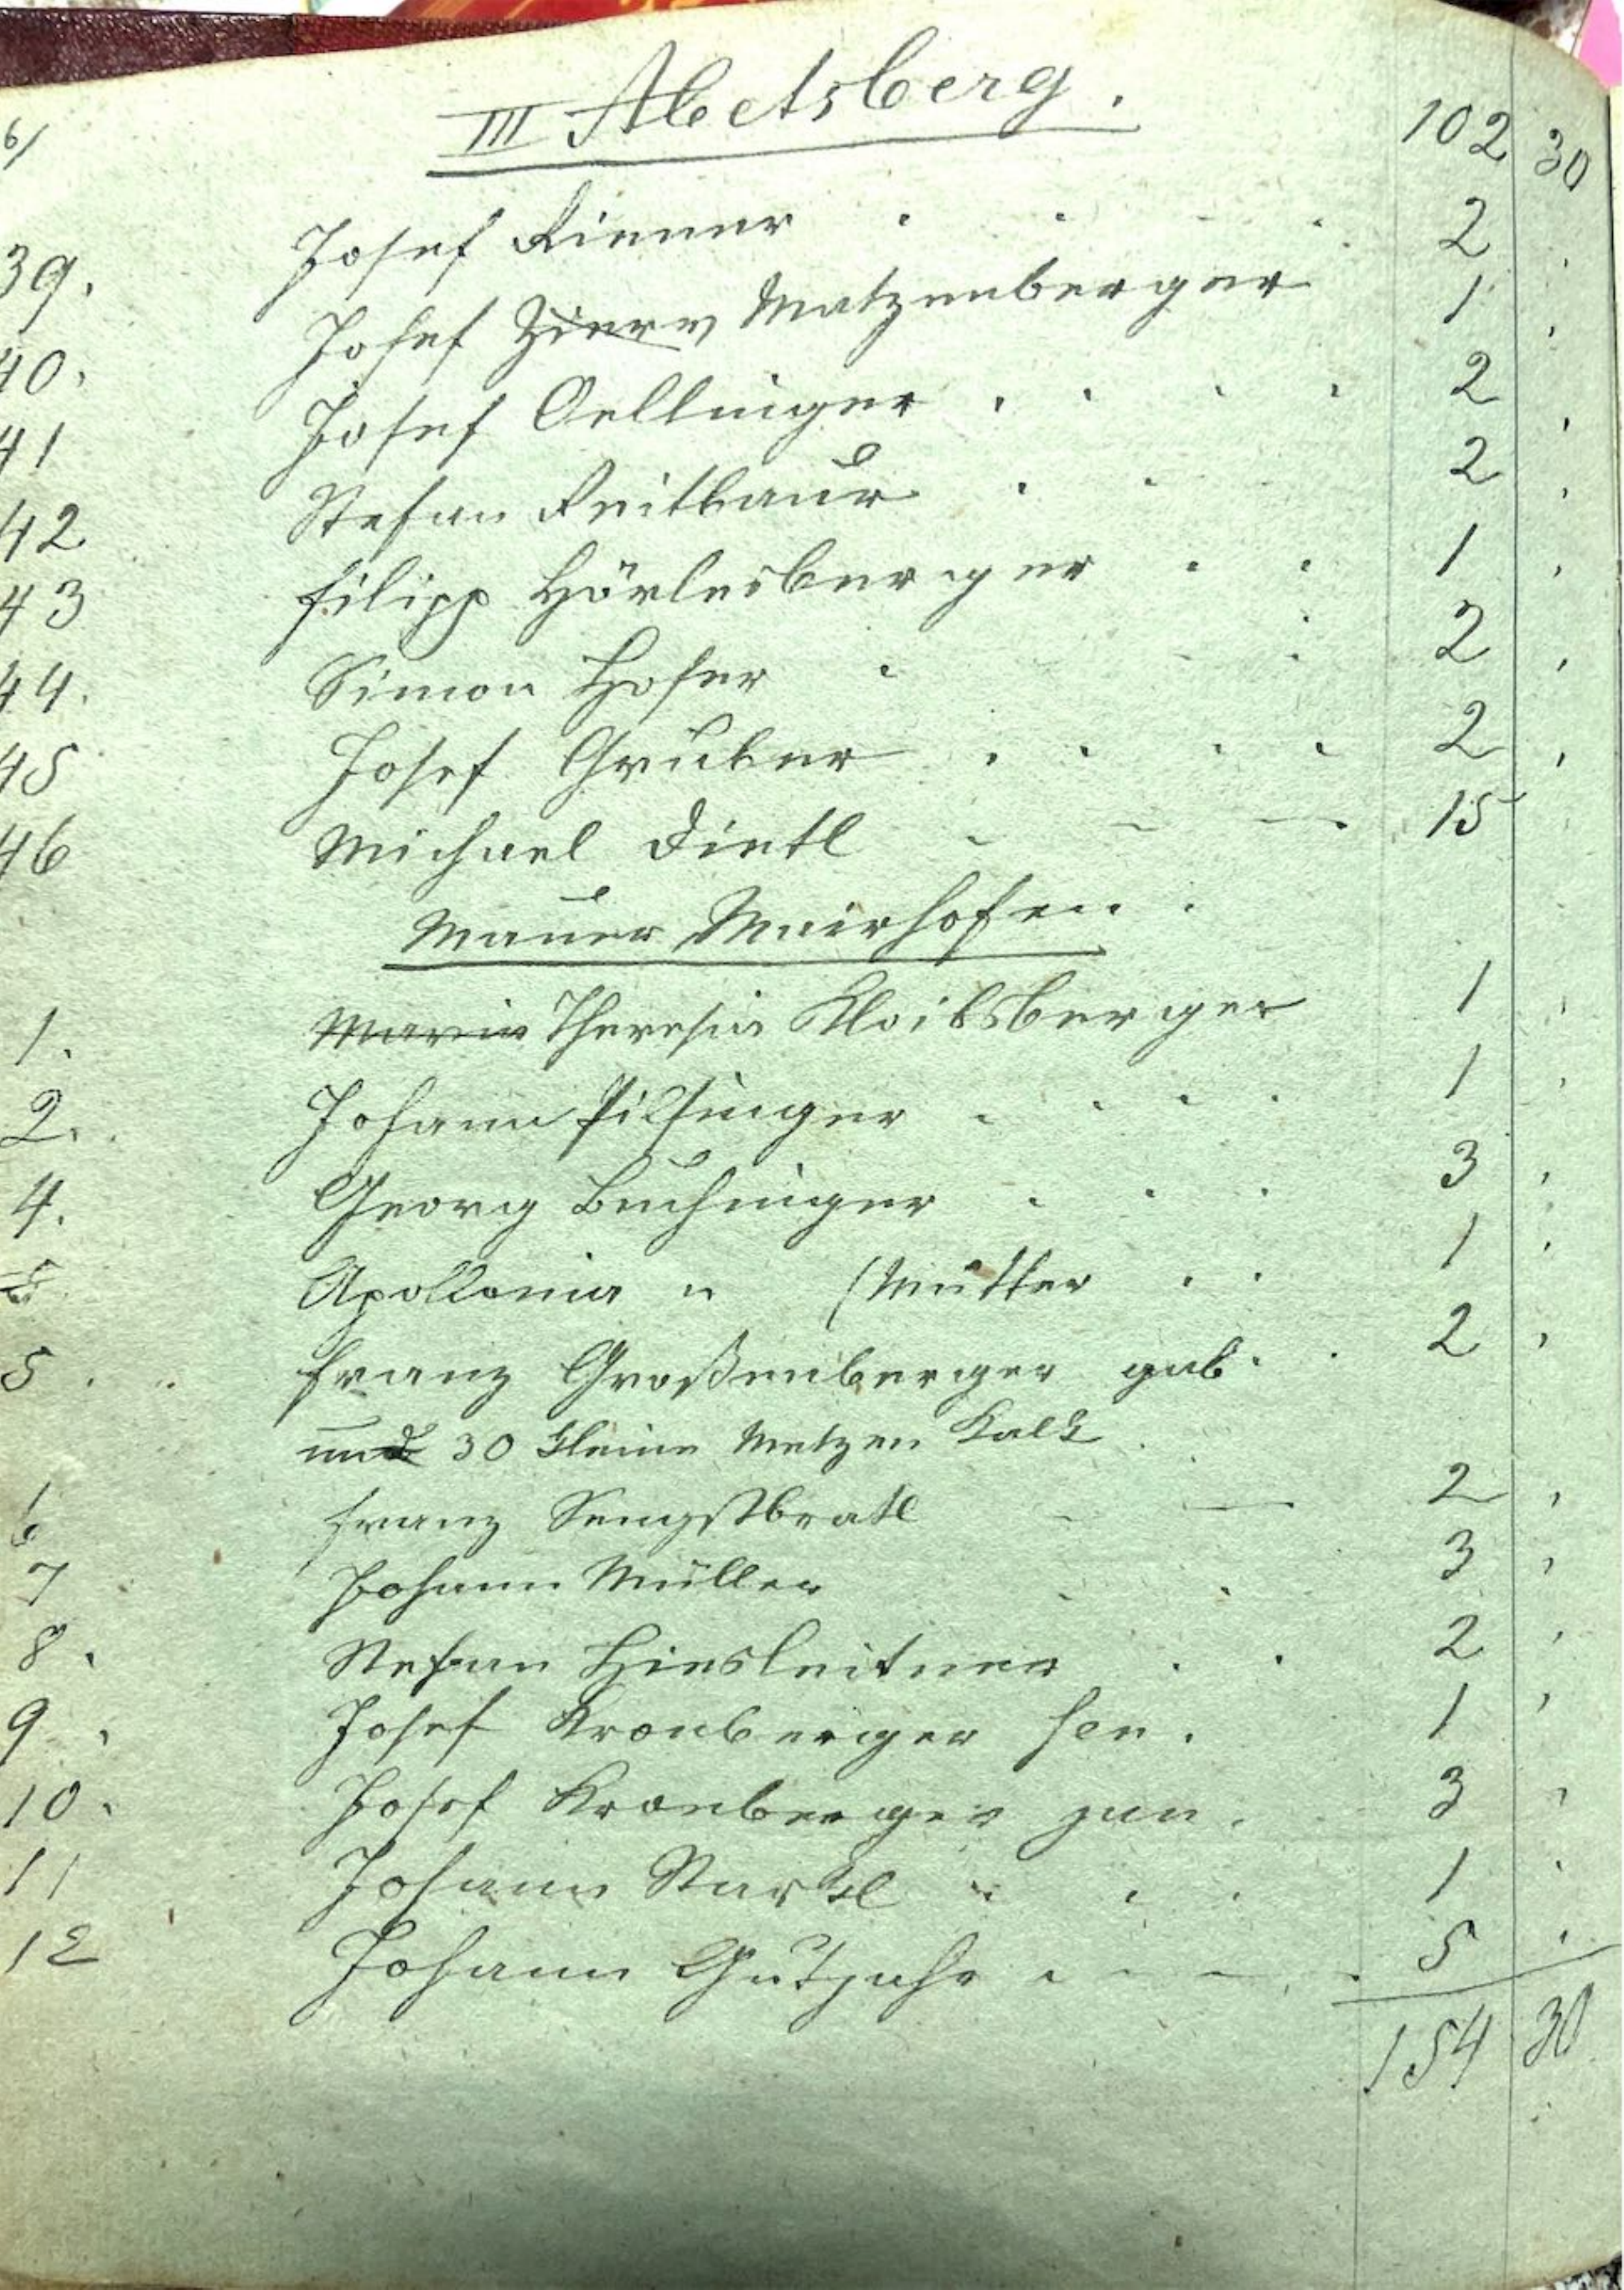 6/ III Abetsberg. 102 30
39. Josef Riener 2
40. Josef Matzenberger 1
41 Josef Oellinger 2
42 Stefan Reitbaur 2
43 Filipp Hörlesberger 1
44. Simon Hofer 2
45 Josef Gruber 2
46 Michael Dietl 15
Mauer Mairhofen.
1. Maria Theresia Kloibsberger 1
2. Johann Pilsinger 1
4. Georg Buchinger 3
5 Apollonia " (Mutter 1
5. Franz Großenberger gab 2
und 30 kleine Metzen Kalk
6 Franz Sengstbratl 2
7 Johann Müller 3
8. Stefan Hiesleitner 2
9. Josef Kronberger sen. 1
10. Josef Kronberger jun. 3
11 Johann Startl 1
12 Johann Gutjahr 5
154 30